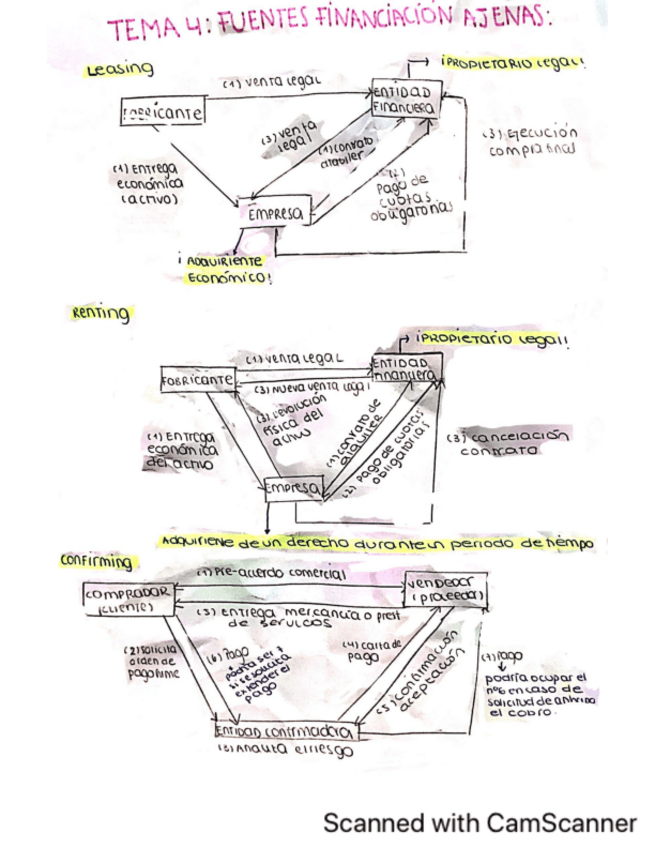 TEMA 4: FUENTES FINANCIACIÓN AJENAS:
Leasing
(1) venta legal
¡PROPIETARIO legal!
Fabricante
ENTIDAD
Financiera
(3) venta
legal
(1) contrato
alquiler
(3) Ejecución
compra final
(1) Entrega
económica
(activo)
Pago de
cuotas
obligatorias
EMPRESA
¡ ADQUIRIENTE
Económico!
Renting
¡PROPIETARIO legal!
(1) venta legal
FABRICANTE
ENTIDAD
Financiera
(3) Nueva venta legal
(3) Devolución
física del
activo
(1) contrato de
alquiler
(2) Pago de cuotas
obligatorias
(1) Entrega
económica
del activo
(3) cancelación
contrato
Empresa
Adquiriente de un derecho durante un periodo de tiempo
Confirming
(1) Pre-acuerdo comercial
COMPRADOR
(cliente)
Vendedor
(proveedor)
(3) Entrega mercancía o prest
de servicos
(2) solicita
orden de
pago firme
(6) Pago
podría ser 7
si se solicita
extender el
pago
(4) carta de
pago
(5) confirmación
aceptación
(7) Pago
podría ocupar el
nº6 en caso de
solicitud de
el cobro.
Entidad confirmadora
(3) Analiza el riesgo
Scanned with CamScanner